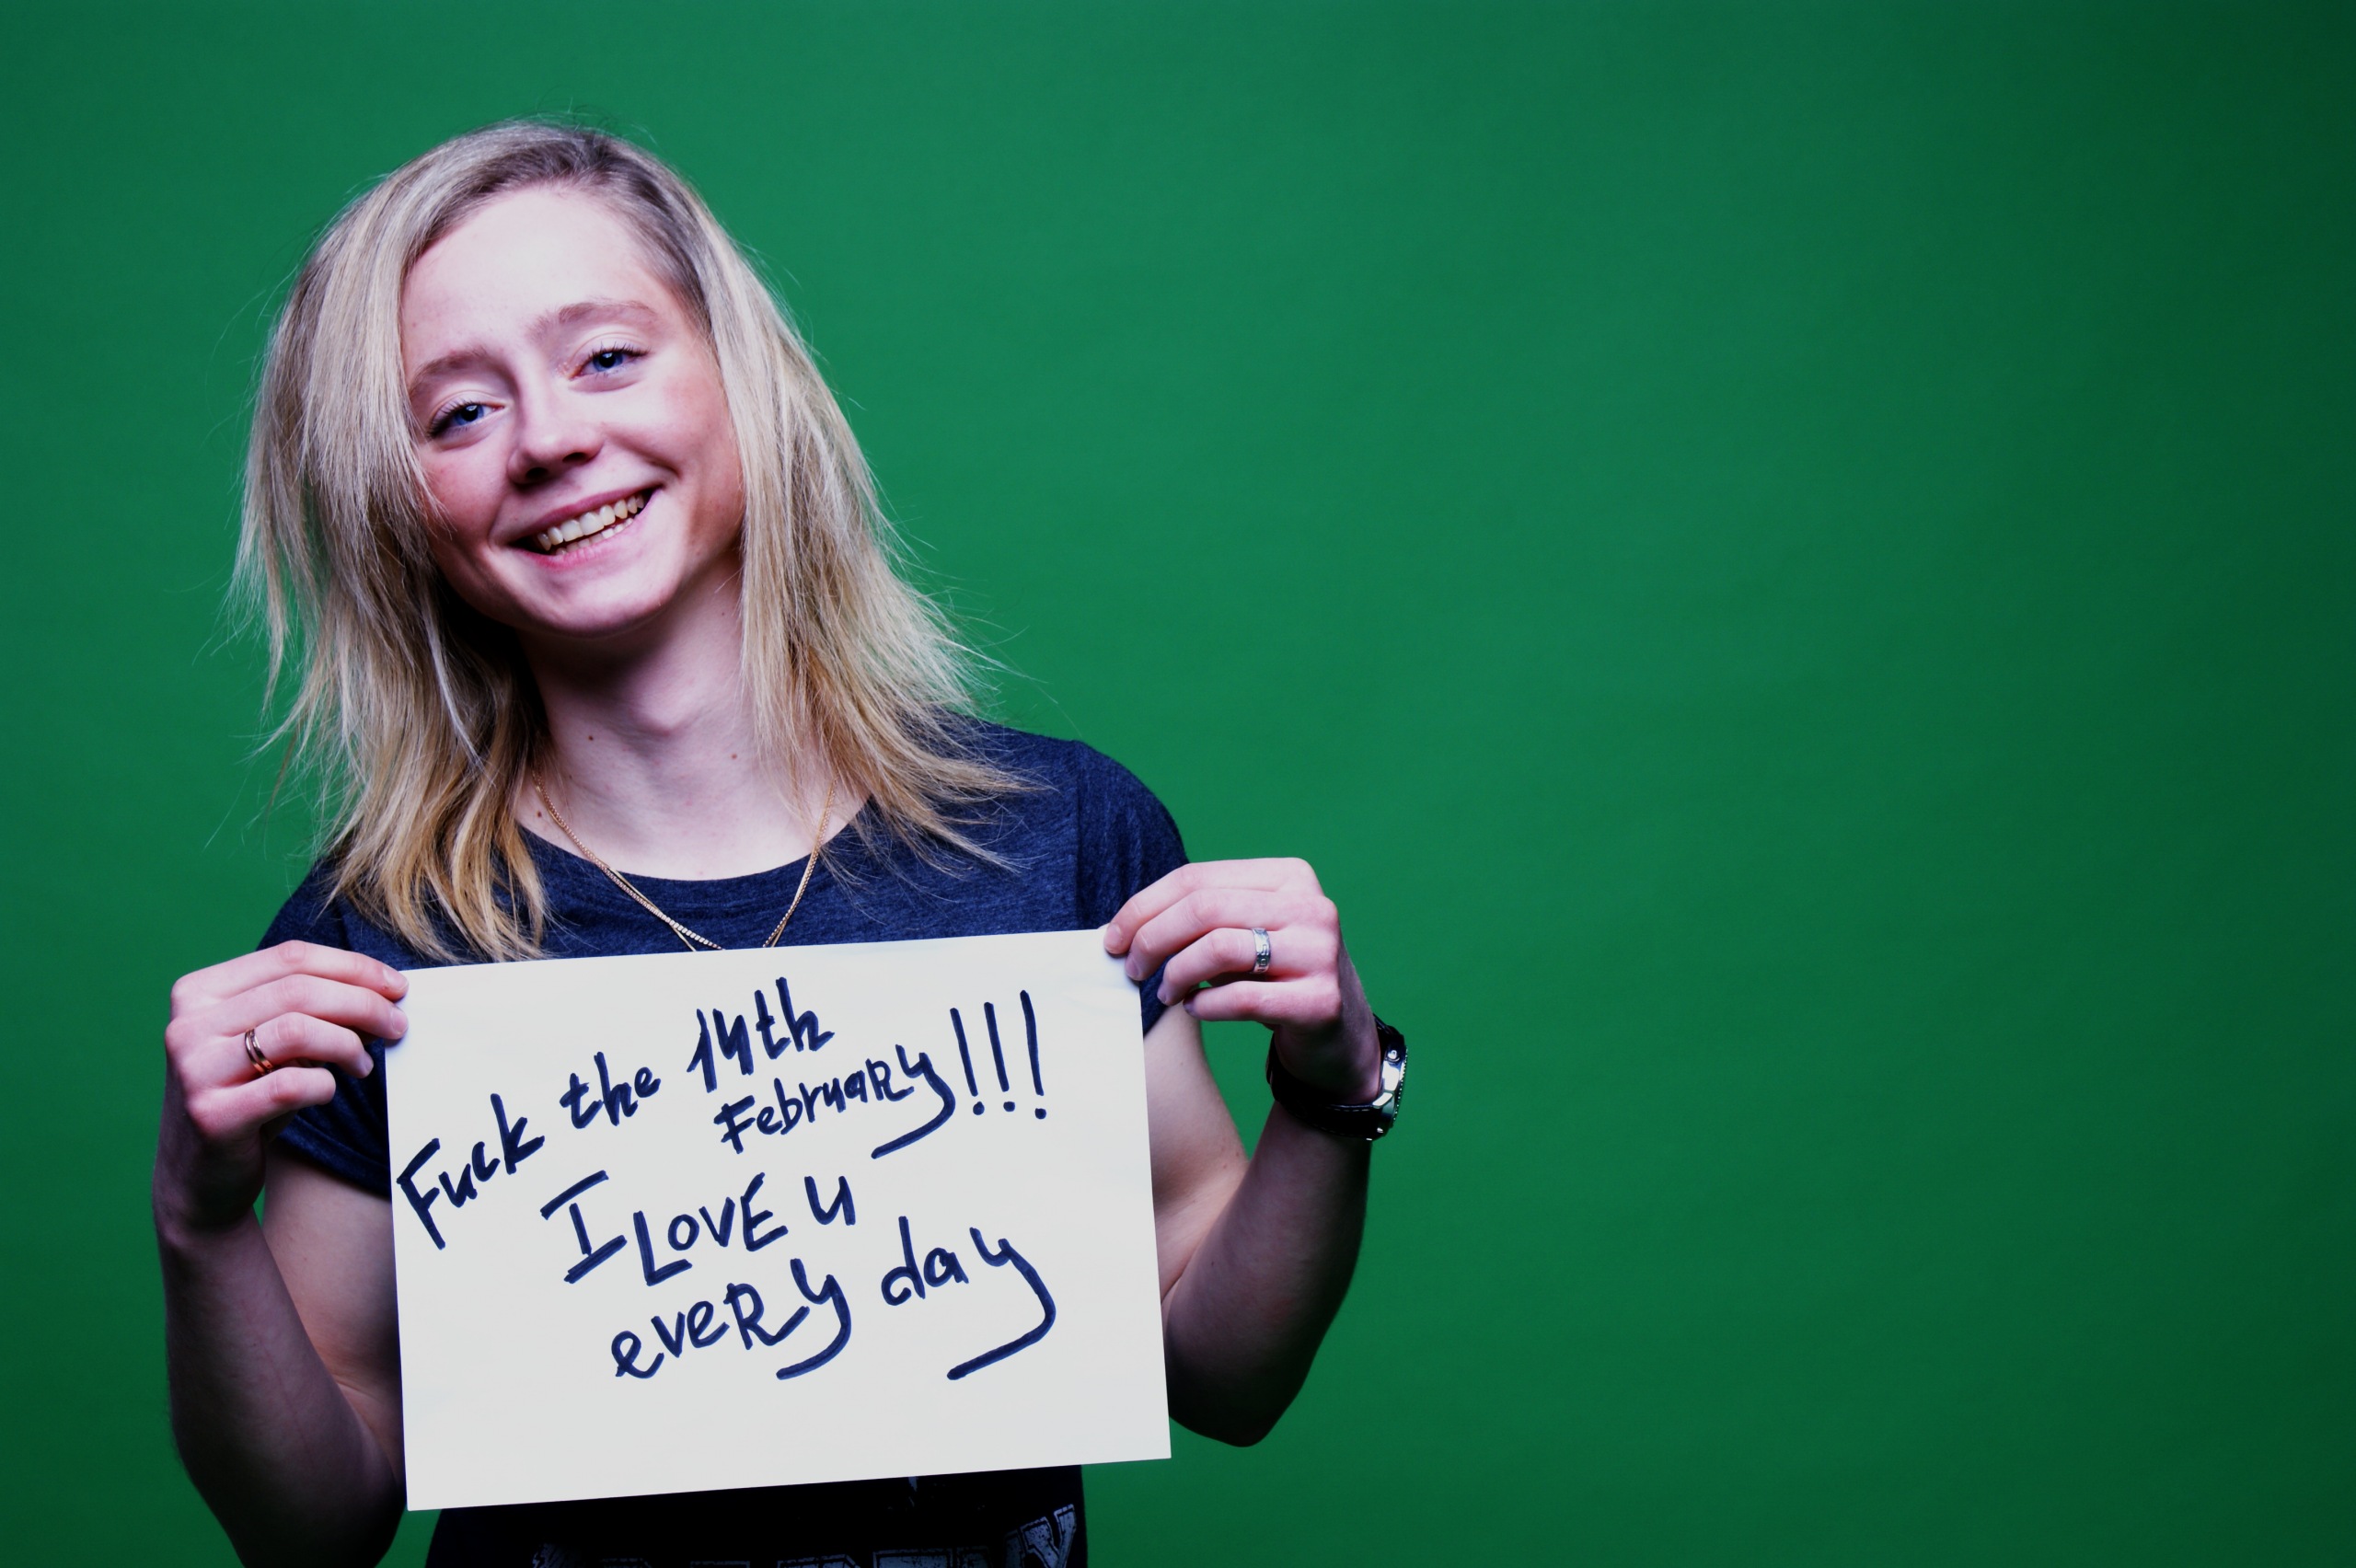 Fuck the 14th
February!!!
I LOVE u
eveRy day